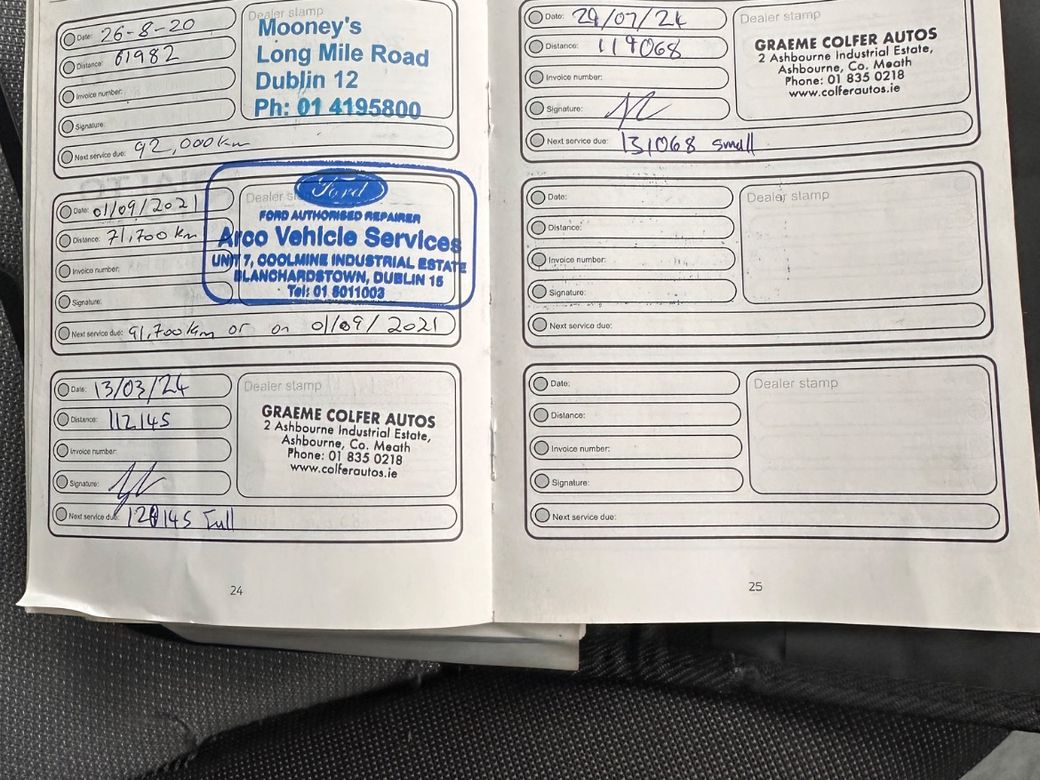 Date: 26-8-20
Distance: 61982
Invoice number:
Signature:
Next service due: 92,000km
Dealer stamp
Mooney's
Long Mile Road
Dublin 12
Ph: 01 4195800
Date: 01/09/2021
Distance: 71,700 km
Invoice number:
Signature:
Next service due: 91,700km or on 01/09/2021
Dealer
Ford
FORD AUTHORISED REPAIRER
Arco Vehicle Services
UNIT 7, COOLMINE INDUSTRIAL ESTATE
BLANCHARDSTOWN, DUBLIN 15
Tel: 01 8011003
Date: 13/03/24
Distance: 112145
Invoice number:
Signature:
Next service due: 124145 Full
Dealer stamp
GRAEME COLFER AUTOS
2 Ashbourne Industrial Estate,
Ashbourne, Co. Meath
Phone: 01 835 0218
www.colferautos.ie
24
Date: 29/07/24
Distance: 119068
Invoice number:
Signature:
Next service due: 131068 small
Dealer stamp
GRAEME COLFER AUTOS
2 Ashbourne Industrial Estate,
Ashbourne, Co. Meath
Phone: 01 835 0218
www.colferautos.ie
Date:
Distance:
Invoice number:
Signature:
Next service due:
Dealer stamp
Date:
Distance:
Invoice number:
Signature:
Next service due:
Dealer stamp
25